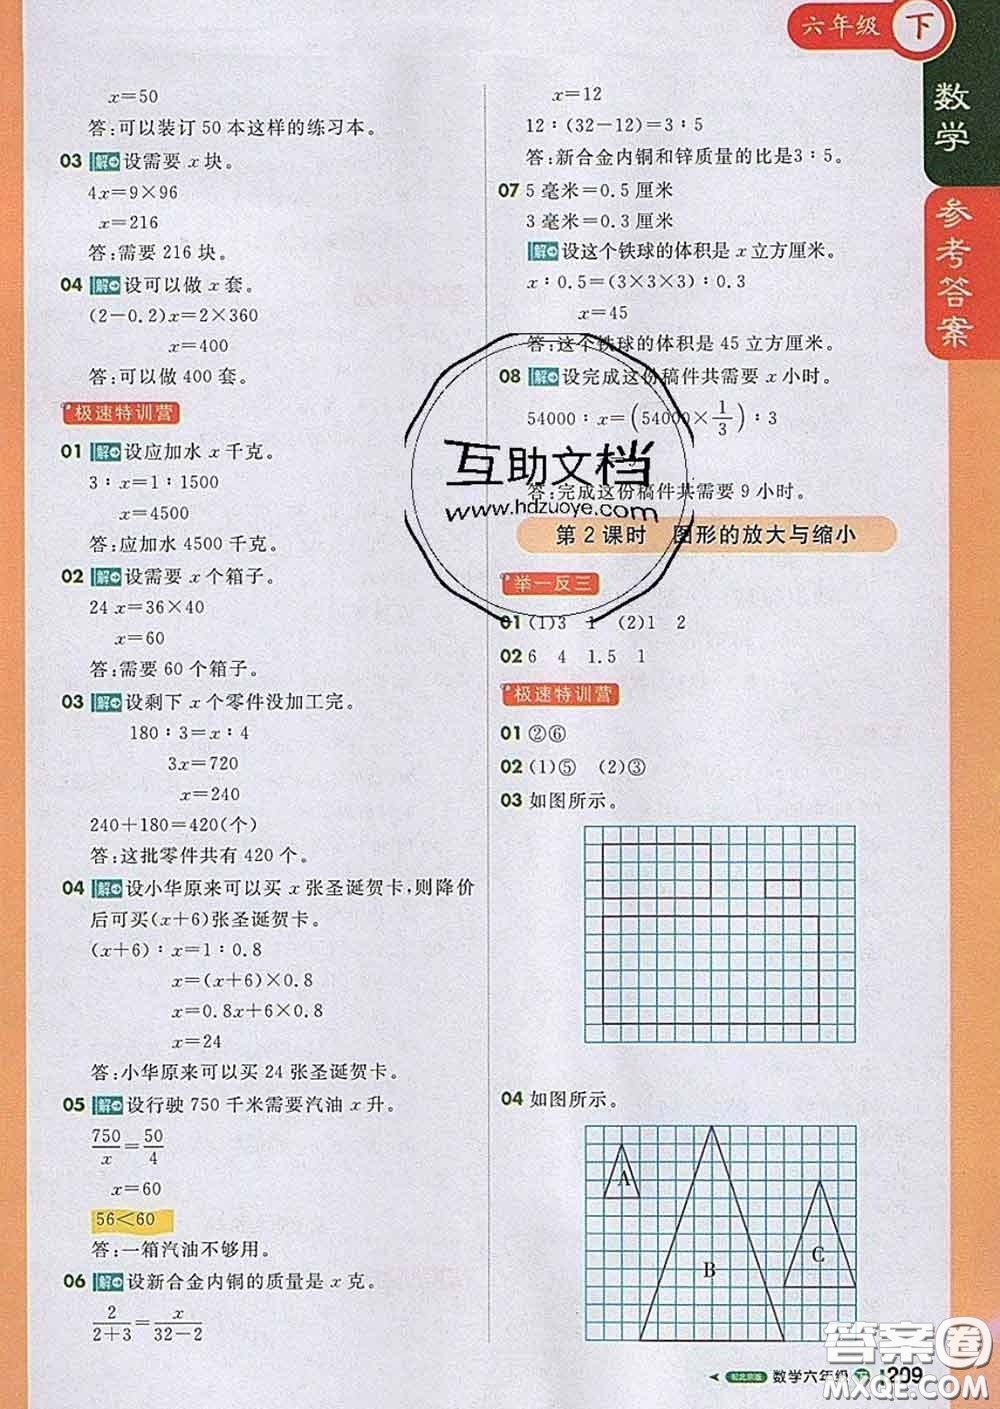 六年级 下
数学
参考答案
x=50
答:可以装订 50 本这样的练习本。
03 解 设需要 x 块。
4x=9×96
x=216
答:需要 216 块。
04 解 设可以做 x 套。
(2-0.2)x=2×360
x=400
答:可以做 400 套。
极速特训营
01 解 设应加水 x 千克。
3∶x=1∶1500
x=4500
答:应加水 4500 千克。
02 解 设需要 x 个箱子。
24 x=36×40
x=60
答:需要 60 个箱子。
03 解 设剩下 x 个零件没加工完。
180∶3=x∶4
3x=720
x=240
240+180=420(个)
答:这批零件共有 420 个。
04 解 设小华原来可以买 x 张圣诞贺卡,则降价
后可买(x+6)张圣诞贺卡。
(x+6)∶x=1∶0.8
x=(x+6)×0.8
x=0.8x+6×0.8
x=24
答:小华原来可以买 24 张圣诞贺卡。
05 解 设行驶 750 千米需要汽油 x 升。
750/x=50/4
x=60
56<60
答:一箱汽油不够用。
06 解 设新合金内铜的质量是 x 克。
2/(2+3)=x/(32-2)
x=12
12∶(32-12)=3∶5
答:新合金内铜和锌质量的比是3∶5。
07 5 毫米=0.5 厘米
3 毫米=0.3 厘米
解 设这个铁球的体积是 x 立方厘米。
x∶0.5=(3×3×3)∶0.3
x=45
答:这个铁球的体积是 45 立方厘米。
08 解 设完成这份稿件共需要 x 小时。
54000∶x=(54000×1/3)∶3
互助文档
www.hdzuoye.com
答:完成这份稿件共需要 9 小时。
第 2 课时 图形的放大与缩小
举一反三
01 (1)3 1 (2)1 2
02 6 4 1.5 1
极速特训营
01 ②⑥
02 (1)⑤ (2)③
03 如图所示。
04 如图所示。
A
B
C
配北京版 数学六年级 下 209
答案圈
MXQE.COM